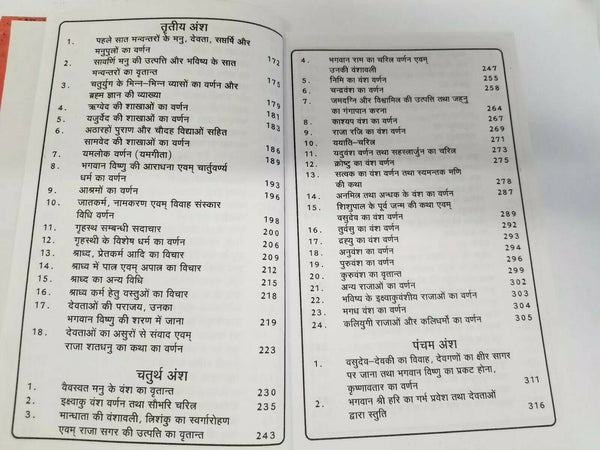 तृतीय अंश
1. पहले सात मन्वन्तरों के मनु, देवता, सप्तर्षि और
मनुपुत्रों का वर्णन 172
2. सावर्णि मनु की उत्पत्ति और भविष्य के सात
मन्वन्तरों का वृतान्त 175
3. चतुर्युग के भिन्न-भिन्न व्यासों का वर्णन और
ब्रह्म ज्ञान की व्याख्या
4. ऋग्वेद की शाखाओं का वर्णन 179
5. यजुर्वेद की शाखाओं का वर्णन 181
6. अठारहों पुराण और चौदह विद्याओं सहित 183
सामवेद की शाखाओं का वर्णन
7. यमलोक वर्णन (यमगीता) 186
8. भगवान विष्णु की आराधना एवम् चार्तुवर्ण्य 189
धर्म का वर्णन
9. आश्रमों का वर्णन 193
10. जातकर्म, नामकरण एवम् विवाह संस्कार 196
विधि वर्णन 198
11. गृहस्थ सम्बन्धी सदाचार 200
12. गृहस्थी के विशेष धर्म का वर्णन 206
13. श्राध्द, प्रेतकर्म आदि का विचार 209
14. श्राध्द में पात्र एवम् अपात्र का विचार 212
15. श्राध्द का अन्य विधि 215
16. श्राध्द कर्म हेतु वस्तुओं का विचार 218
17. देवताओं की पराजय, उनका
भगवान विष्णु की शरण में जाना 219
18. देवताओं का असुरों से संवाद एवम्
राजा शतधनु का कथा का वर्णन 223
चतुर्थ अंश
1. वैवस्वत मनु के वंश का वृतान्त 230
2. इक्ष्वाकु वंश वर्णन तथा सौभरि चरित्र 235
3. मान्धाता की वंशावली, त्रिशंकु का स्वर्गारोहण
एवम् राजा सगर की उत्पत्ति का वृतान्त 243
4. भगवान राम का चरित्र वर्णन एवम्
उनकी वंशावली 247
5. निमि का वंश वर्णन 255
6. चन्द्रवंश का वर्णन 258
7. जमदग्नि और विश्वामित्र की उत्पत्ति तथा जहनु
का गंगापान करना 264
8. काश्यप वंश का वर्णन 267
9. राजा रजि का वंश वर्णन 269
10. ययाति-चरित्र 271
11. यदुवंश वर्णन तथा सहस्त्रार्जुन का चरित्र 273
12. क्रोष्टु का वंश वर्णन 275
13. सत्वक का वंश वर्णन तथा स्यमन्तक मणि
की कथा 278
14. अनमित्र तथा अन्धक के वंश का वर्णन 287
15. शिशुपाल के पूर्व जन्म की कथा एवम्
वसुदेव का वंश वर्णन 289
16. तुर्वसु का वंश वर्णन 292
17. द्रह्यु का वंश वर्णन 293
18. अनुवंश का वर्णन 294
19. पुरुवंश का वर्णन 296
20. कुरुवंश का वृतान्त 299
21. अन्य राजाओं का वर्णन 302
22. भविष्य के इक्ष्वाकुवंशीय राजाओं का वर्णन 303
23. मगध वंश का वर्णन 304
24. कलियुगी राजाओं और कलिधर्मों का वर्णन 305
पंचम अंश
1. वसुदेव-देवकी का विवाह, देवगणों का क्षीर सागर
पर जाना तथा भगवान विष्णु का प्रकट होना,
कृष्णावतार का वर्णन 311
2. भगवान श्री हरि का गर्भ प्रवेश तथा देवताओं
द्वारा स्तुति 316